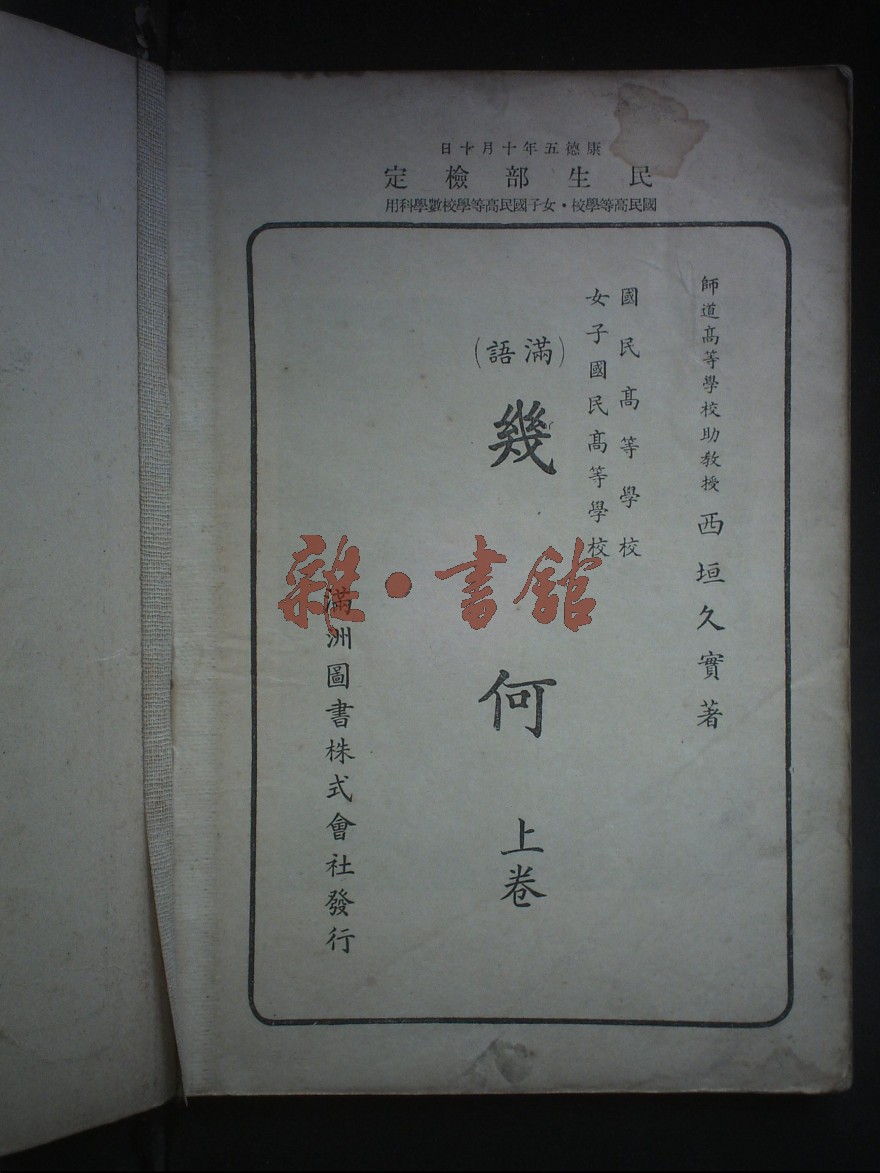 康德五年十月十日
民生部檢定
國民高等學校・女子國民高等學校數學科用
師道高等學校助教授 西垣久實著
國民高等學校
女子國民高等學校
(滿語)
幾何 上卷
滿洲圖書株式會社發行
雜・書館